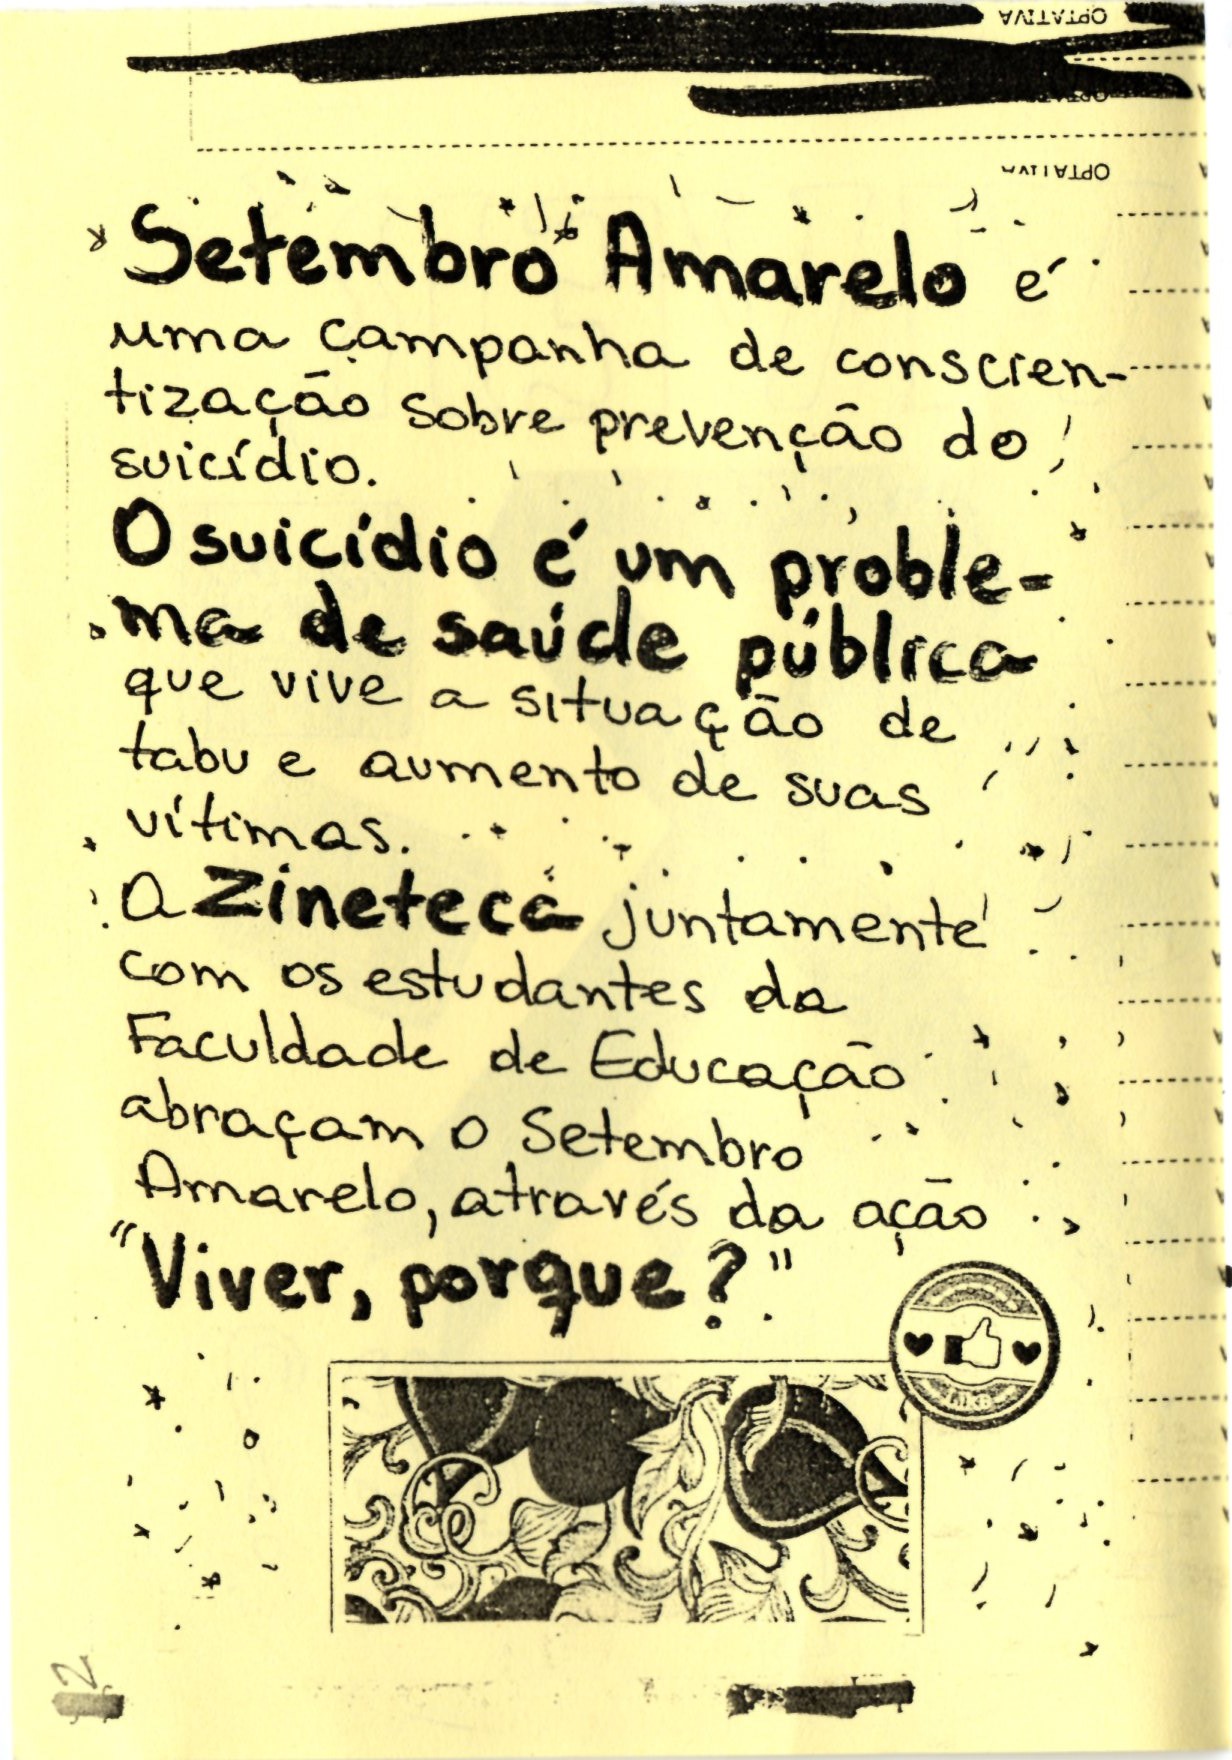 OPTATIVA
OPTATIVA
OPTATIVA
Setembro Amarelo é
uma campanha de conscien-
tização sobre prevenção do
suicídio.
O suicídio é um proble-
ma de saúde pública
que vive a situação de
tabu e aumento de suas
vítimas.
A Zineteca juntamente
com os estudantes da
Faculdade de Educação
abraçam o Setembro
Amarelo, através da ação
"Viver, porque?"
LIKE
2